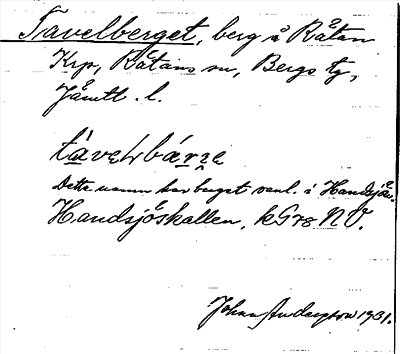 Tavelberget, berg i Råtan
Krp, Råtans sn, Bergs tg,
Jämtl. l.
tàvel,bárje
Detta namn har berget vanl. i Handsjön.
Handsjöskallen, k G re NV.
Johan Andersson 1931.